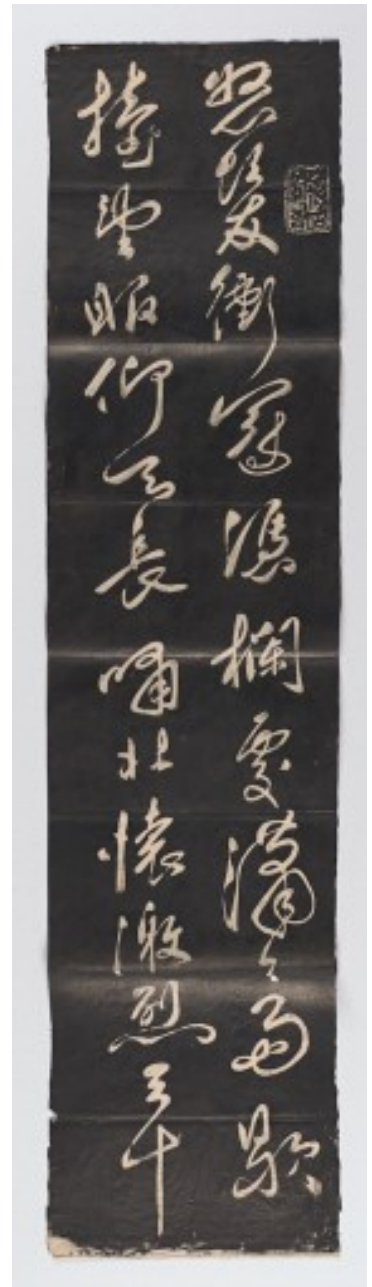 怒髮衝冠憑欄處瀟々雨歇
擡望眼仰天長嘯壯懷激烈三十